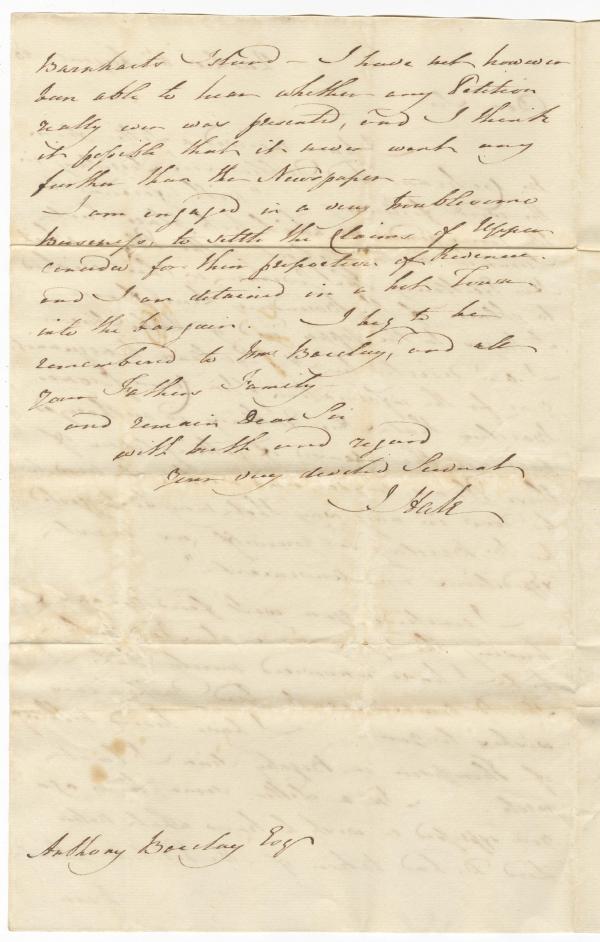 Barnharts Island — I have not however
been able to hear whether any Petition
really ever was presented, and I think
it possible that it never went any
further than the Newspaper —
I am engaged in a very troublesome
business, to settle the Claims of Upper
Canada for their proportion of Revenue.
and I am detained in a hot Town
into the bargain. I beg to be
remembered to Mrs Barclay, and all
your Fathers Family
and remain Dear Sir
with truth and regard
your very devoted Servant
J Hale
Anthony Barclay Esqr